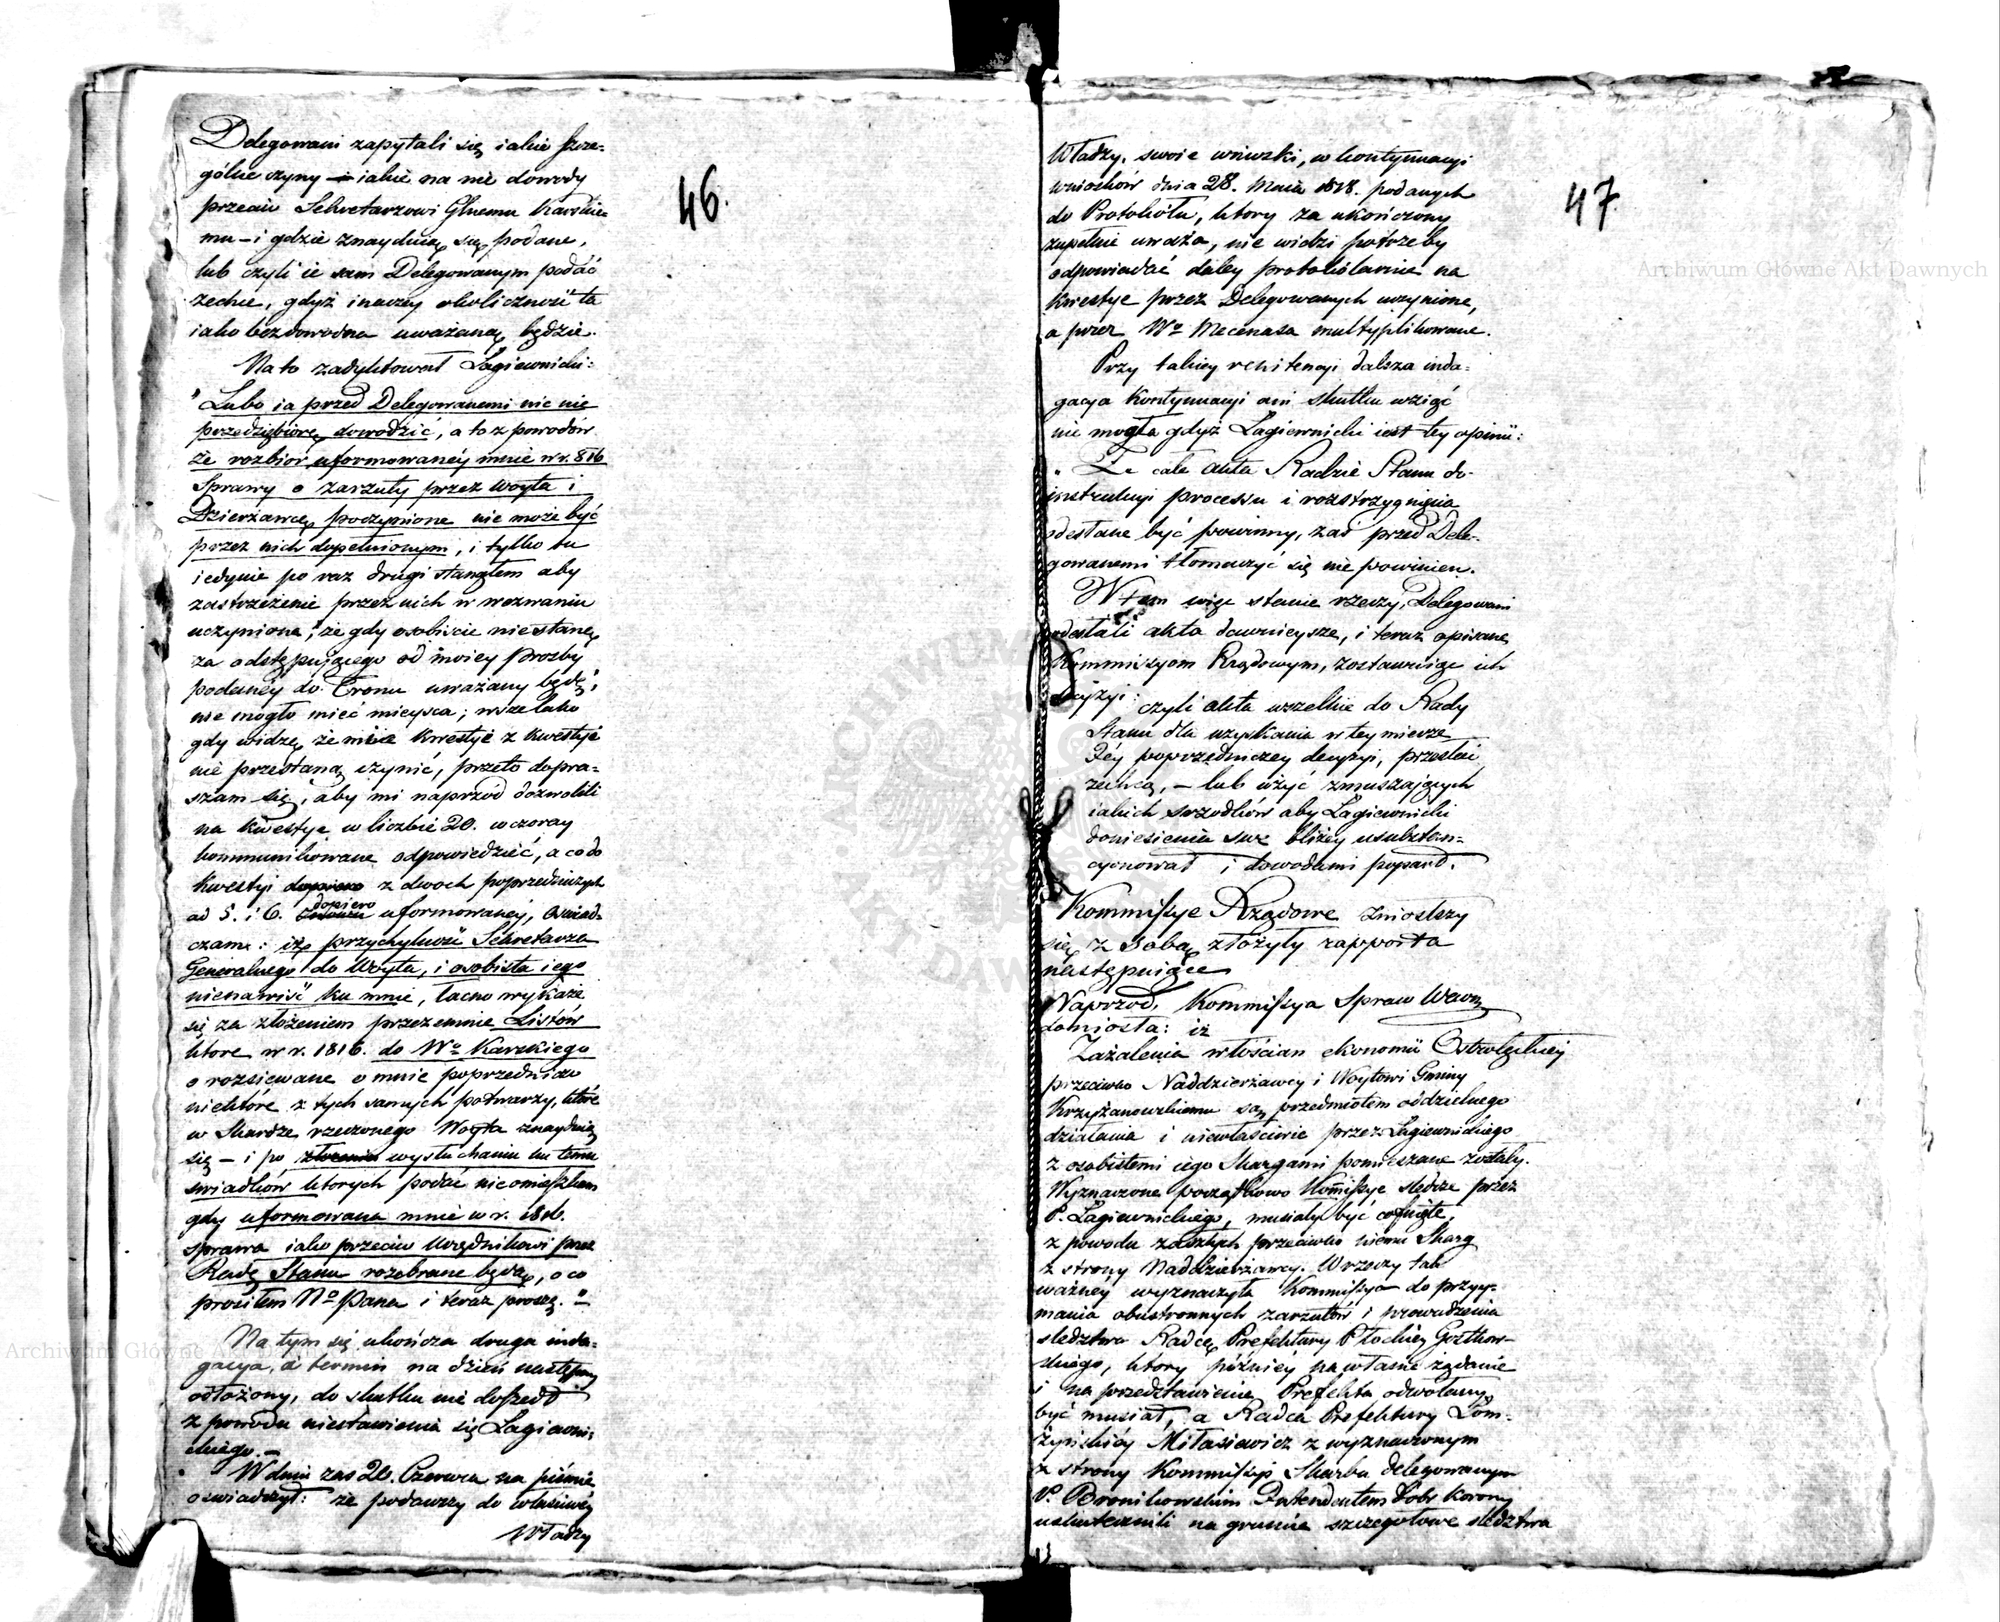 46.
Delegowani zapytali się iakie szcze-
gólne czyny i iakie na nie dowody
przeciw Sekretarzowi Glnemu Karskie-
mu – i gdzie znayduią się podane,
lub czyli ie sam Delegowanym podać
zechce, gdyż inaczey okoliczność ta
iako bezdowodna uważaną będzie.
Na to zadyktował Łagiewnicki:
"Lubo ia przed Delegowanemi nic nie
przedsiębiorę dowodzić, a to z powodów
że rozbiór uformowanéy mnie w r. 816
Sprawy o zarzuty przez Woyta i
Dzierżawcę poczynione nie może być
przez nich dopełnionym, i tylko tu
iedynie po raz drugi stanąłem aby
zastrzeżenie przez nich w wezwaniu
uczynione, "że gdy osobiście nie stanę
za odstępuiącego od moiey prośby
podanéy do Tronu uważany będę",
nie mogło mieć mieysca; wszelako
gdy widzę że mnie kwestye z kwestyi
nie przestaną czynić, przeto dopra-
szam się, aby mi naprzód dozwolili
na kwestye w liczbie 20. wczoray
kommunikowane odpowiedzieć, a co do
kwestyi z dwoch poprzedniczych
ad 5. i 6. dopiero uformowanéy, oświad-
czam: iż przychylność Sekretarza
Generalnego do Woyta, i osobista iego
nienawiść ku mnie, łatwo wykaże
się za złożeniem przezemnie Listów
które w r. 1816. do Wo Karskiego
o rozsiewane o mnie poprzedniczo
niektóre z tych samych potwarzy, które
w Skardze rzeczonego Woyta znayduią
się – i po wysłuchaniu ku temu
świadków których podać nieomieszkam
gdy uformowana mnie w r. 1816.
sprawa iako przeciw Urzędnikowi przez
Radę Stanu rozebrane będą, o co
prosiłem No Pana i teraz proszę."
Na tym się ukończa druga inda-
gacya, a termin na dzień następny
odłożony, do skutku nie doszedł
z powodu niestawienia się Łagiewni-
ckiego. –
W dniu zaś 20. Czerwca na piśmie
oświadczył: że podawszy do właściwéy
Władzy
47
Władzy, swoie wnioski, w kontynuacyi
wniosków dnia 28. Maia 1818. podanych
do Protokółu, który za ukończony
zupełnie uważa, nie widzi potrzeby
odpowiadać daley protokólarnie na
kwestye przez Delegowanych uczynione,
a przez Wo Mecenasa multyplikowane.
Przy takiey renitencyi dalsza inda-
gacya kontynuacyi ani skutku wziąć
nie mogła gdyż Łagiewnicki iest tey opinii:
"Że całe akta Radzie Stanu do
instrukcyi processu i rozstrzygnienia
odesłane być powinny, zaś przed Dele-
gowanemi tłomaczyć się nie powinien.
W tem więc stanie rzeczy, Delegowani
odesłali akta dawnieysze, i teraz opisane
Kommissyom Rządowym, zostawuiąc ich
decyzyi: czyli akta wszelkie do Rady
Stanu dla uzyskania w tey mierze
Jéy poprzedniczey decyzyi, przesłać
zechcą, – lub użyć zmuszaiących
iakich srzodków aby Łagiewnicki
doniesienia swe bliżey usubstan-
cyonował i dowodami poparł.
Kommissye Rządowe zniosłszy
się z sobą złożyły rapporta
następuiące
Naprzód, Kommissya Spraw Wewn.
doniosła: iż
Zażalenia włościan ekonomii Ostrołęckiey
przeciwko Naddzierżawcy i Woytowi Gminy
Krzyżanowskiemu są przedmiotem oddzielnego
działania i niewłaściwie przez Łagiewnickiego
z osobistemi iego Skargami pomieszane zostały.
Wyznaczone początkowo Kommissye śledcze przez
P. Łagiewnickiego, musiały być cofnięte,
z powodu zaszłych przeciwko niemu Skarg
z strony Naddzierżawcy. W rzeczy tak
ważnéy wyznaczyła Kommissya do przyy-
mania obustronnych zarzutów i prowadzenia
śledztwa Radcę Prefektury Płockiéy Gostkow-
skiego, który późniey na własne żądanie
i na przedstawienie Prefekta odwołany
być musiał, a Radca Prefektury Łom-
żyńskiéy Miłasiewicz z wyznaczonym
z strony Kommissyi Skarbu delegowanym
P. Bronikowskim Intendentem Dobr Korony
uskutecznili na gruncie szczegółowe śledztwa
Archiwum Główne Akt Dawnych
Archiwum Główne Akt Dawnych